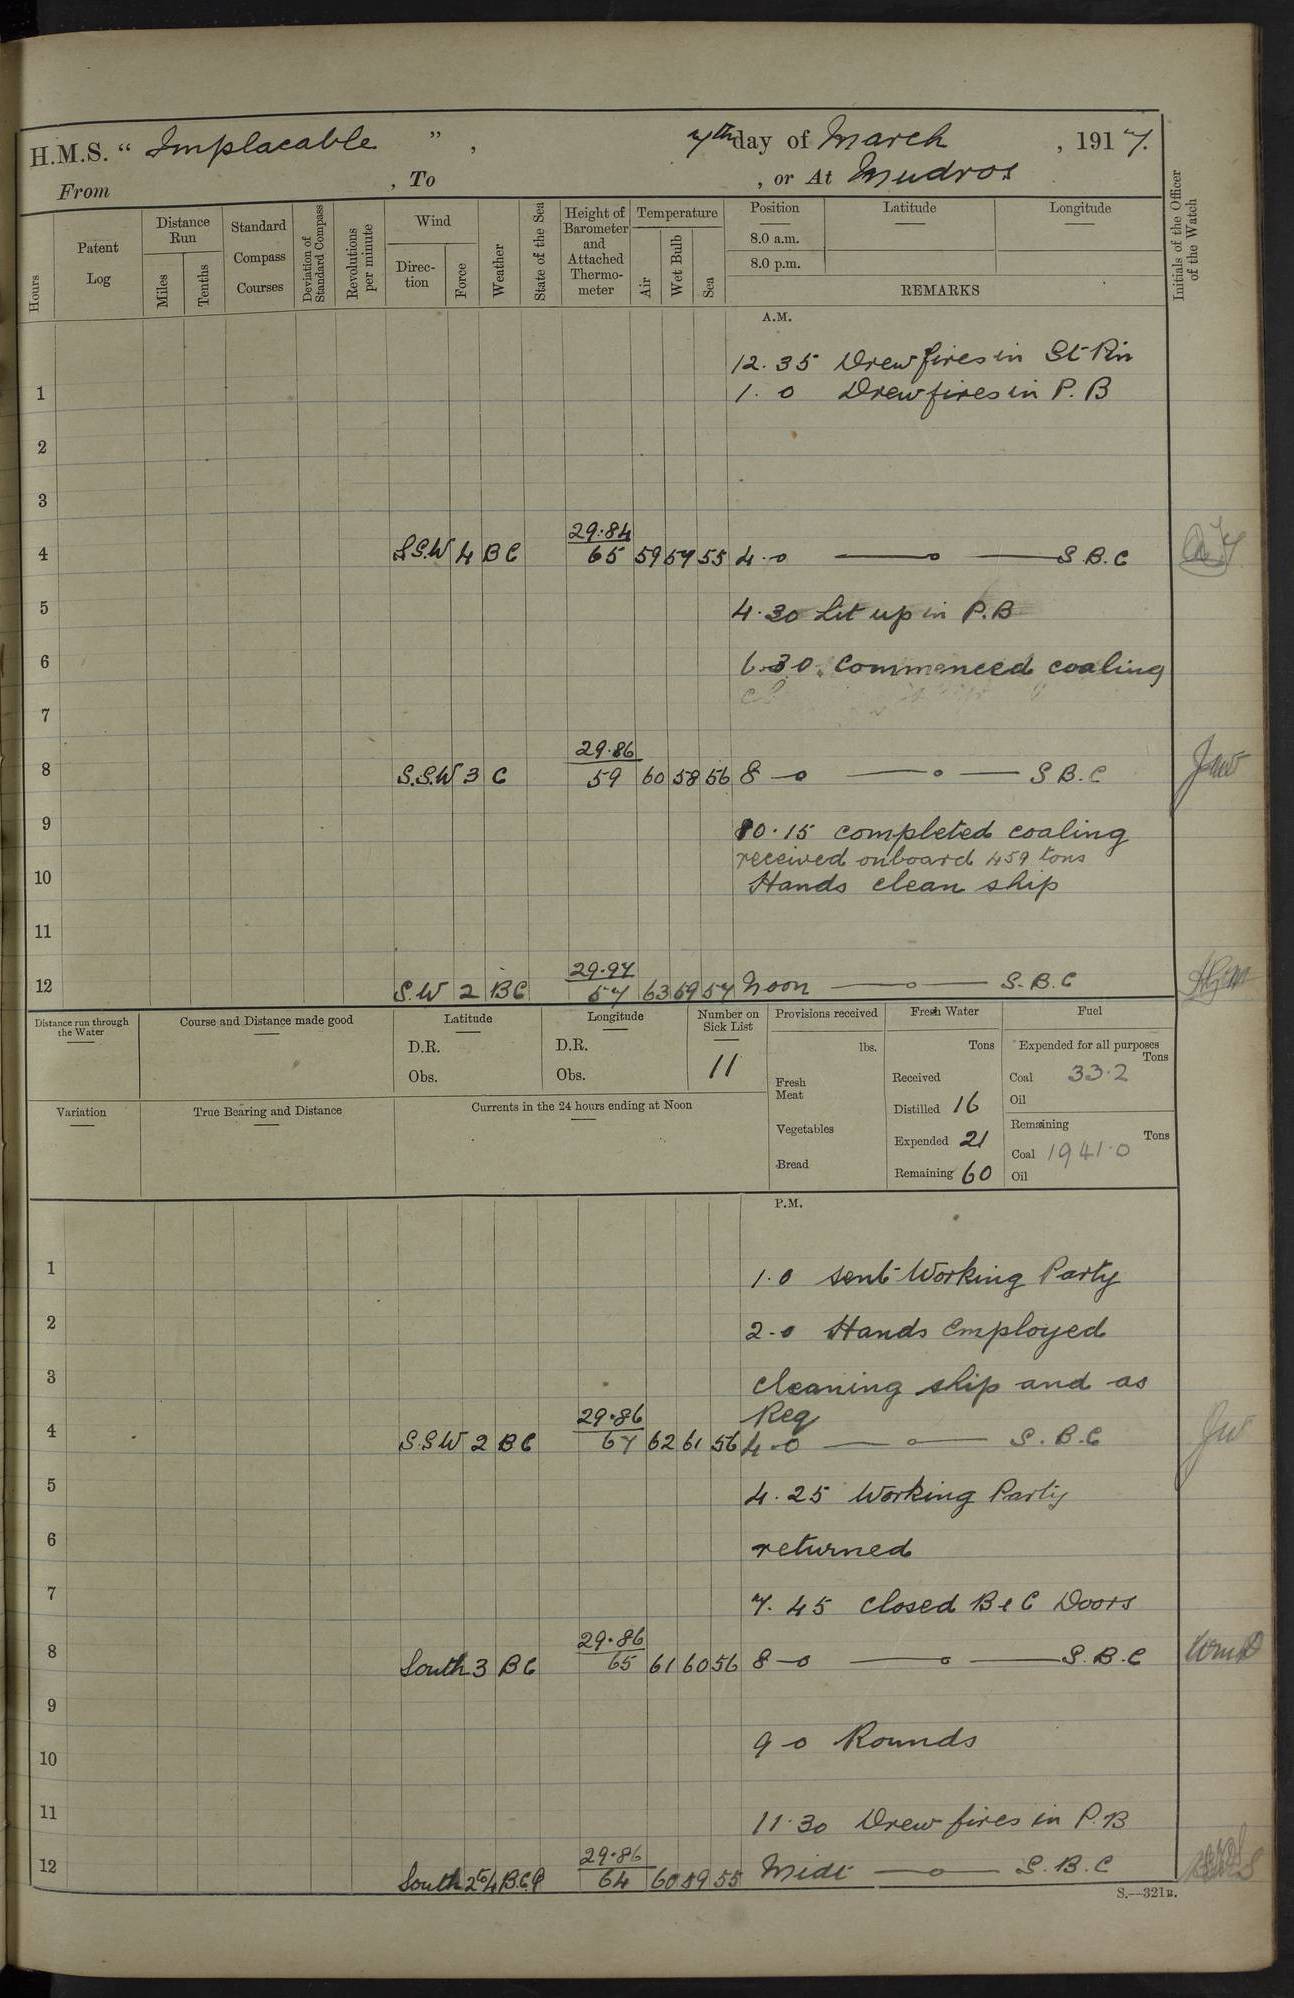 H.M.S. “ Implacable ” , 7th day of March , 1917.
From , To , or At Mudros
Hours
Patent Log
Distance Run
Miles
Tenths
Standard Compass Courses
Deviation of Standard Compass
Revolutions per minute
Wind
Direction
Force
Weather
State of the Sea
Height of Barometer and Attached Thermometer
Temperature
Air
Wet Bulb
Sea
Position
8.0 a.m.
8.0 p.m.
Latitude
Longitude
REMARKS
Initials of the Officer of the Watch
A.M.
12.35 Drew fires in St
1 1.0 Drew fires in P.B
2
3
29.84
4 S.S.W 4 BC 65 59 57 55 4.0 — o — S.B.C
5 4.30 Lit up in P.B
6 6.30. Commenced coaling
7
29.86
8 S.S.W 3 C 59 60 58 56 8-0 — o — S.B.C
9 10.15 completed coaling
received onboard 459 tons
10 Hands clean ship
11
29.97
12 S.W 2 BC 57 63 59 57 Noon — o — S.B.C
Distance run through the Water
Course and Distance made good
Latitude
D.R.
Obs.
Longitude
D.R.
Obs.
Number on Sick List
11
Provisions received
lbs.
Fresh Meat
Vegetables
Bread
Fresh Water
Tons
Received
Distilled 16
Expended 21
Remaining 60
Fuel
Expended for all purposes
Tons
Coal 33.2
Oil
Remaining
Tons
Coal 1941.0
Oil
Variation
True Bearing and Distance
Currents in the 24 hours ending at Noon
P.M.
1 1.0 sent Working Party
2 2.0 Hands Employed
3 cleaning ship and as
29.86 Req
4 S.S.W 2 BC 67 62 61 56 4.0 — o — S.B.C
5 4.25 Working Party
6 returned
7 7.45 Closed B & C Doors
29.86
8 South 3 BC 65 61 60 56 8-0 — o — S.B.C
9
10 9-0 Rounds
11 11.30 Drew fires in P.B
29.86
12 South 2to4 B.C.Q 64 60 59 55 Midt — o — S.B.C
S.—321B.